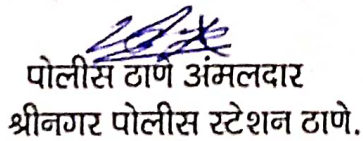 पोलीस ठाणे अंमलदार
श्रीनगर पोलीस स्टेशन ठाणे.